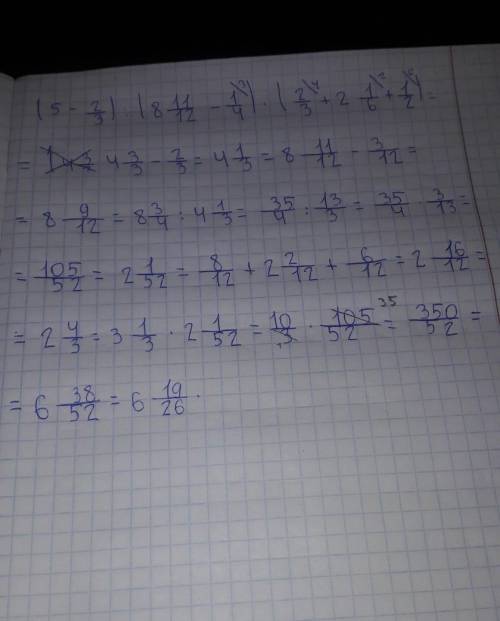 (5 - 2/3) : (8 11/12 - 1/4) · (2/3 + 2 1/6 + 1/2) =
= 4 3/3 - 2/3 = 4 1/3 = 8 11/12 - 3/12 =
= 8 9/12 = 8 3/4 : 4 1/3 = 35/4 : 13/3 = 35/4 3/13 =
= 105/52 = 2 1/52 = 8/12 + 2 2/12 + 6/12 = 2 16/12 =
= 2 4/3 = 3 1/3 · 2 1/52 = 10/3 · 105/52 35 = 350/52 =
= 6 38/52 = 6 19/26 .